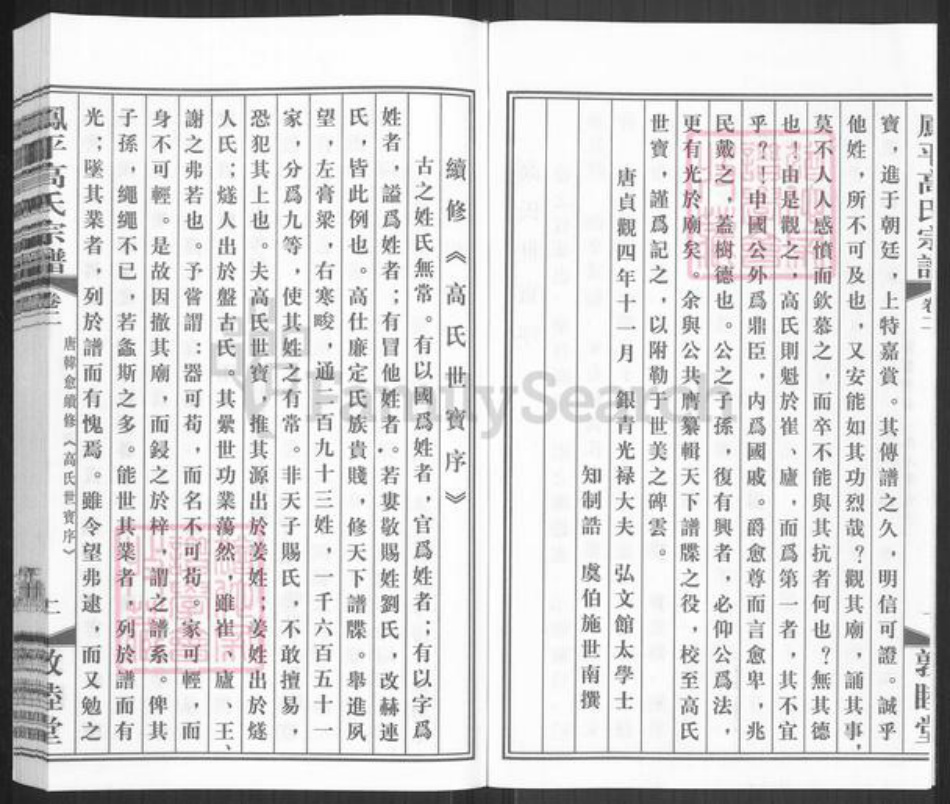 鳳平高氏宗譜 卷二
敦睦堂
寶，進于朝廷，上特嘉賞。其傳譜之久，明信可證。誠乎
他姓，所不可及也，又安能如其功烈哉？觀其廟，誦其事，
莫不人人感憤而欽慕之，而卒不能與其抗者何也？無其德
也，由是觀之，高氏則魁於崔、廬，而爲第一者，其不宜
乎？！申國公外爲鼎臣，内爲國戚。爵愈尊而言愈卑，兆
民戴之，蓋樹德也。公之子孫，復有興者，必仰公爲法，
更有光於廟矣。余與公共膺纂輯天下譜牒之役，校至高氏
世寶，謹爲記之，以附勒于世美之碑雲。
唐貞觀四年十一月 銀青光禄大夫 弘文館太學士
知制誥 虞伯施世南撰
續修《高氏世寶序》
古之姓氏無常。有以國爲姓者，官爲姓者；有以字爲
姓者，謚爲姓者；有冒他姓者。若婁敬賜姓劉氏，改赫連
氏，皆此例也。高仕廉定氏族貴賤，修天下譜牒。舉進夙
望，左膏粱，右寒畯，通二百九十三姓，一千六百五十一
家，分爲九等，使其姓之有常。非天子賜氏，不敢擅易，
恐犯其上也。夫高氏世寶，推其源出於姜姓；姜姓出於燧
人氏；燧人出於盤古氏。其纍世功業蕩然，雖崔、廬、王、
謝之弗若也。予嘗謂：器可苟，而名不可苟。家可輕，而
身不可輕。是故因撤其廟，而鋟之於梓，謂之譜系。俾其
子孫，繩繩不已，若螽斯之多。能世其業者，列於譜而有
光；墜其業者，列於譜而有愧焉。雖令望弗逮，而又勉之
鳳平高氏宗譜 卷二
唐韓愈續修《高氏世寶序》
二
敦睦堂
FamilySearch